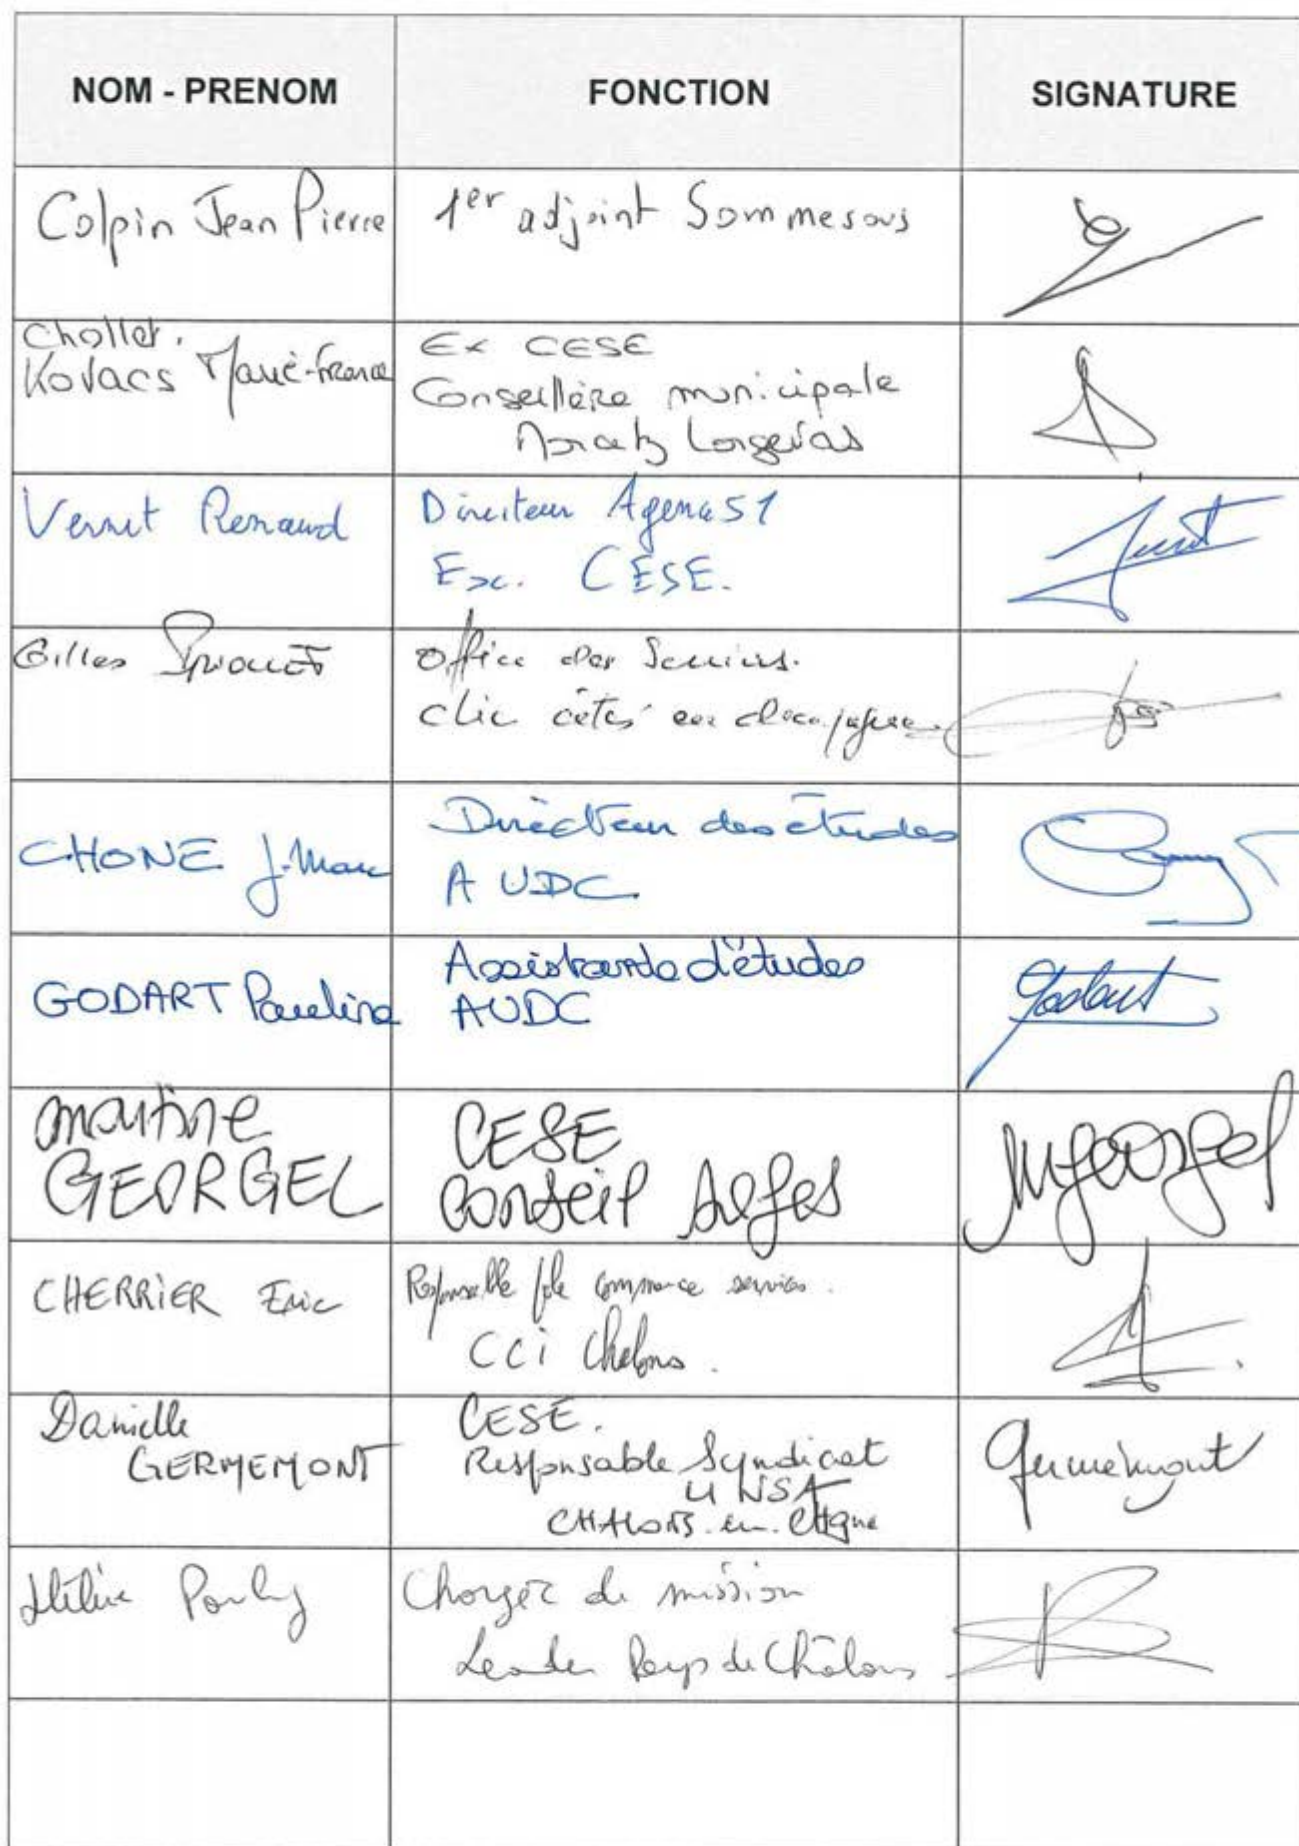 NOM - PRENOM FONCTION SIGNATURE
Colpin Jean Pierre 1er adjoint Sommesous
Chollet.
Kovacs Marie-France
Ex CESE
Conseillère municipale
Vernet Renaud
Directeur Agence 51
Exc. CESE.
Gilles
Office des Seniors.
Clic côtés en champagne
CHONE J-Marc
Directeur des études
AUDC
GODART Pauline
Assistante d'études
AUDC
Martine
GEORGEL
CESE
Conseil
MGeorgel
CHERRIER Eric
Responsable pôle commerce services.
CCi Chalons.
Danielle
GERMEMONT
CESE.
Responsable Syndicat
UNSA
CHALONS.en.CHgne
Germemont
Hélène
Chargée de mission
Leader Pays de Châlons